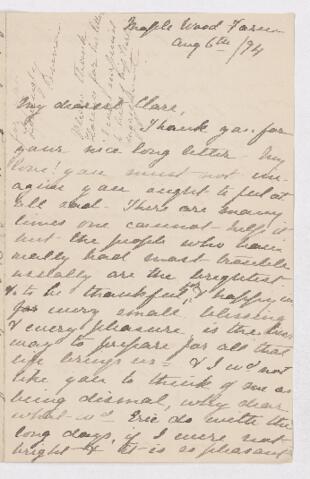 Maple Wood Farm
Aug 6th /94
My dearest Clare,
Thank you for
your nice long letter. My
love! you must not im-
agine you ought to put at
all sad. There are many
times one cannot help it
but the people who have
really had most trouble
usually are the brightest
& to be thankful & happy in
for every small blessing
& every pleasure, is the best
way to prepare for all that
life brings us = & I wd not
like you to think of me as
being dismal, why dear
what wd Eric do with the
long days, if I were not
bright & it is as pleasant
Please thank
for his letter